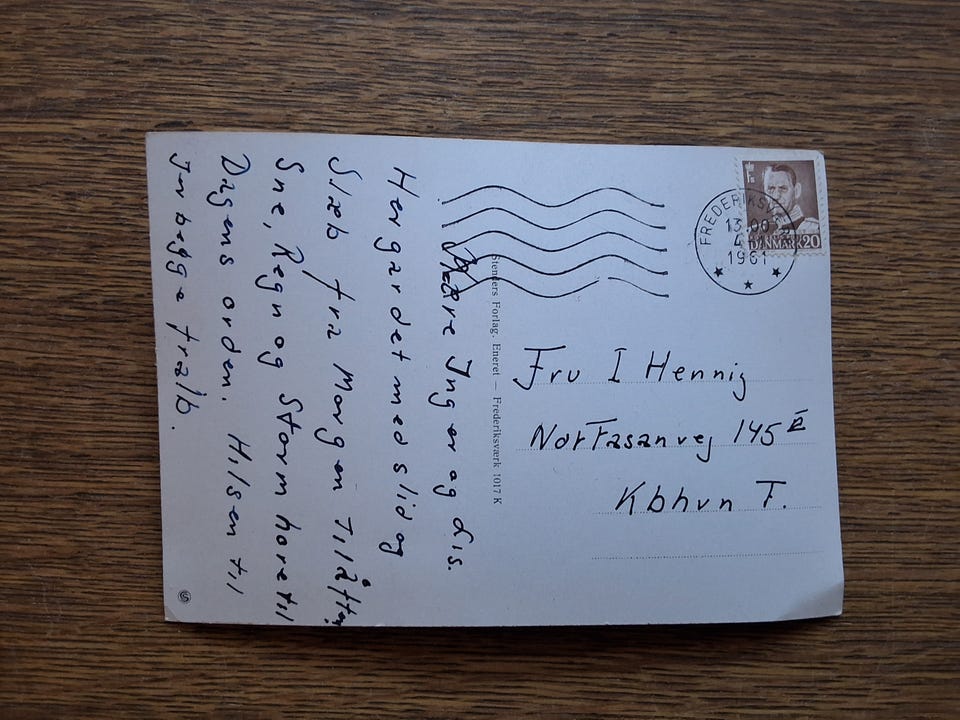 Kære Inger og dis.
Her går det med slid og
Slæb fra Morgen til åften
Sne, Regn og Storm hore til
Dagens orden. Hilsen til
Jer begge fra Ib.
Stenders Forlag. Eneret — Frederiksværk 1017 K
FREDERIKSV
13.00
4
1961
DANMARK 20
Fru I Hennig
Nor Fasanvej 145
Kbhvn F.